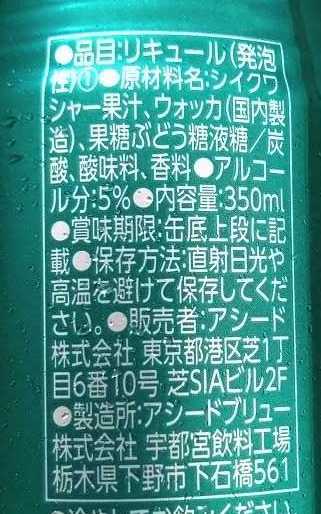 ●品目:リキュール(発泡
性)①●原材料名:シイクワ
シャー果汁、ウォッカ(国内製
造)、果糖ぶどう糖液糖/炭
酸、酸味料、香料●アルコー
ル分:5%●内容量:350ml
●賞味期限:缶底上段に記
載●保存方法:直射日光や
高温を避けて保存してくだ
さい。●販売者:アシード
株式会社 東京都港区芝1丁
目6番10号 芝SIAビル2F
●製造所:アシードブリュー
株式会社 宇都宮飲料工場
栃木県下野市下石橋561
●冷やしてお飲みください